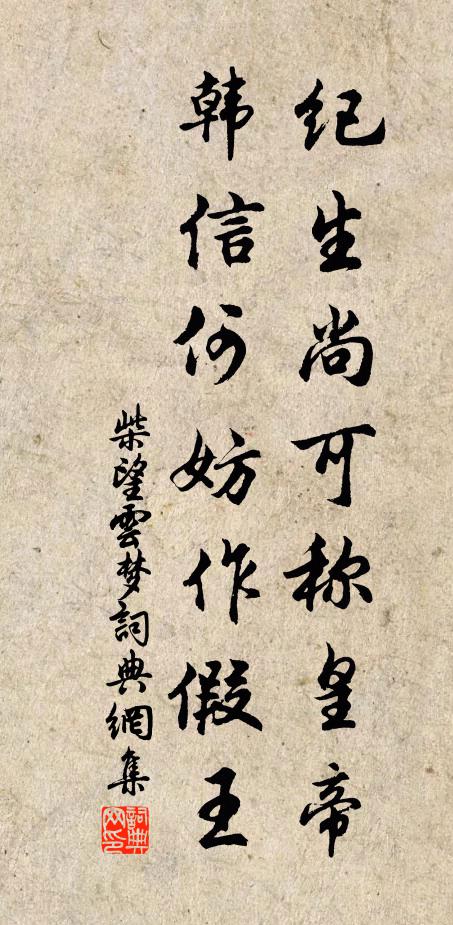 纪生尚可称皇帝
韩信何妨作假王
柴望雲梦詞典網集
詞典网印